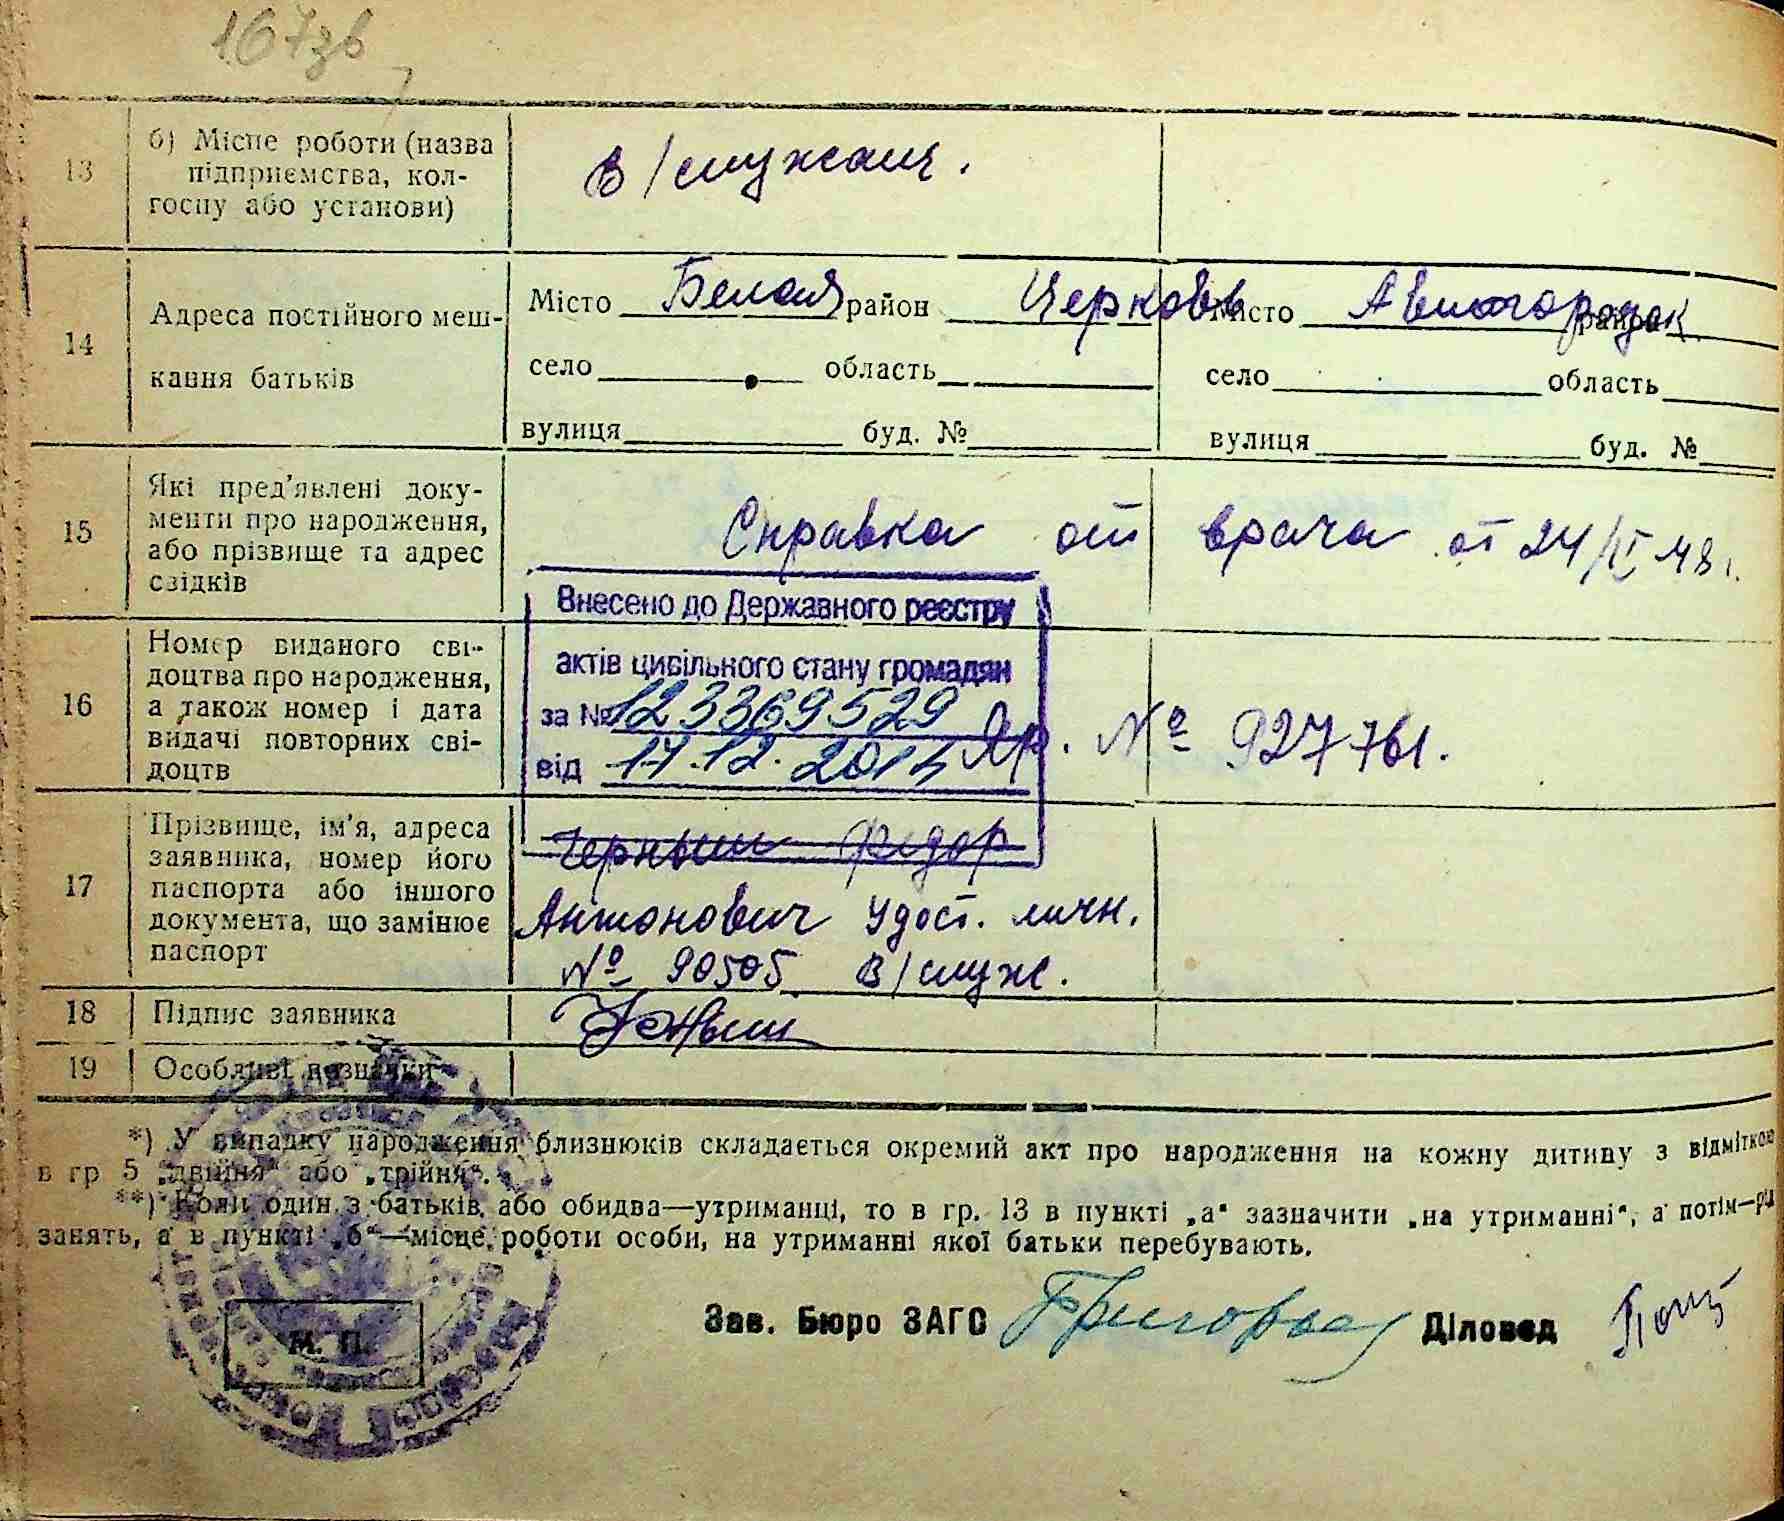 167зв
13
б) Місце роботи (назва
підприємства, кол-
госпу або установи)
в/служащ.
14
Адреса постійного меш-
кання батьків
Місто Белая район Церковь Місто Авиагородок район
село область село область
вулиця буд. № вулиця буд. №
15
Які пред'явлені доку-
менти про народження,
або прізвище та адрес
свідків
Справка от врача от 24/IX 48 г.
Внесено до Державного реєстру
актів цивільного стану громадян
за № 123369529
від 17.12.2014
16
Номер виданого сві-
доцтва про народження,
а також номер і дата
видачі повторних сві-
доцтв
Яр. № 927761.
17
Прізвище, ім'я, адреса
заявника, номер його
паспорта або іншого
документа, що замінює
паспорт
Черныш Федор
Антонович Удост. личн.
№ 90505 в/служ.
18
Підпис заявника
19
Особливі позначки
*) У випадку народження близнюків складається окремий акт про народження на кожну дитину з відміткою
в гр 5 „двійня“ або „трійня“.
**) Коли один з батьків, або обидва—утриманці, то в гр. 13 в пункті „а“ зазначити „на утриманні“, а потім—рід
занять, а в пункті „б“—місце роботи особи, на утриманні якої батьки перебувають.
М. П.
Зав. Бюро ЗАГС Діловод